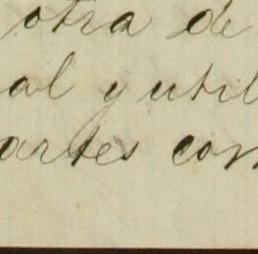 otra de
al y util
artes com